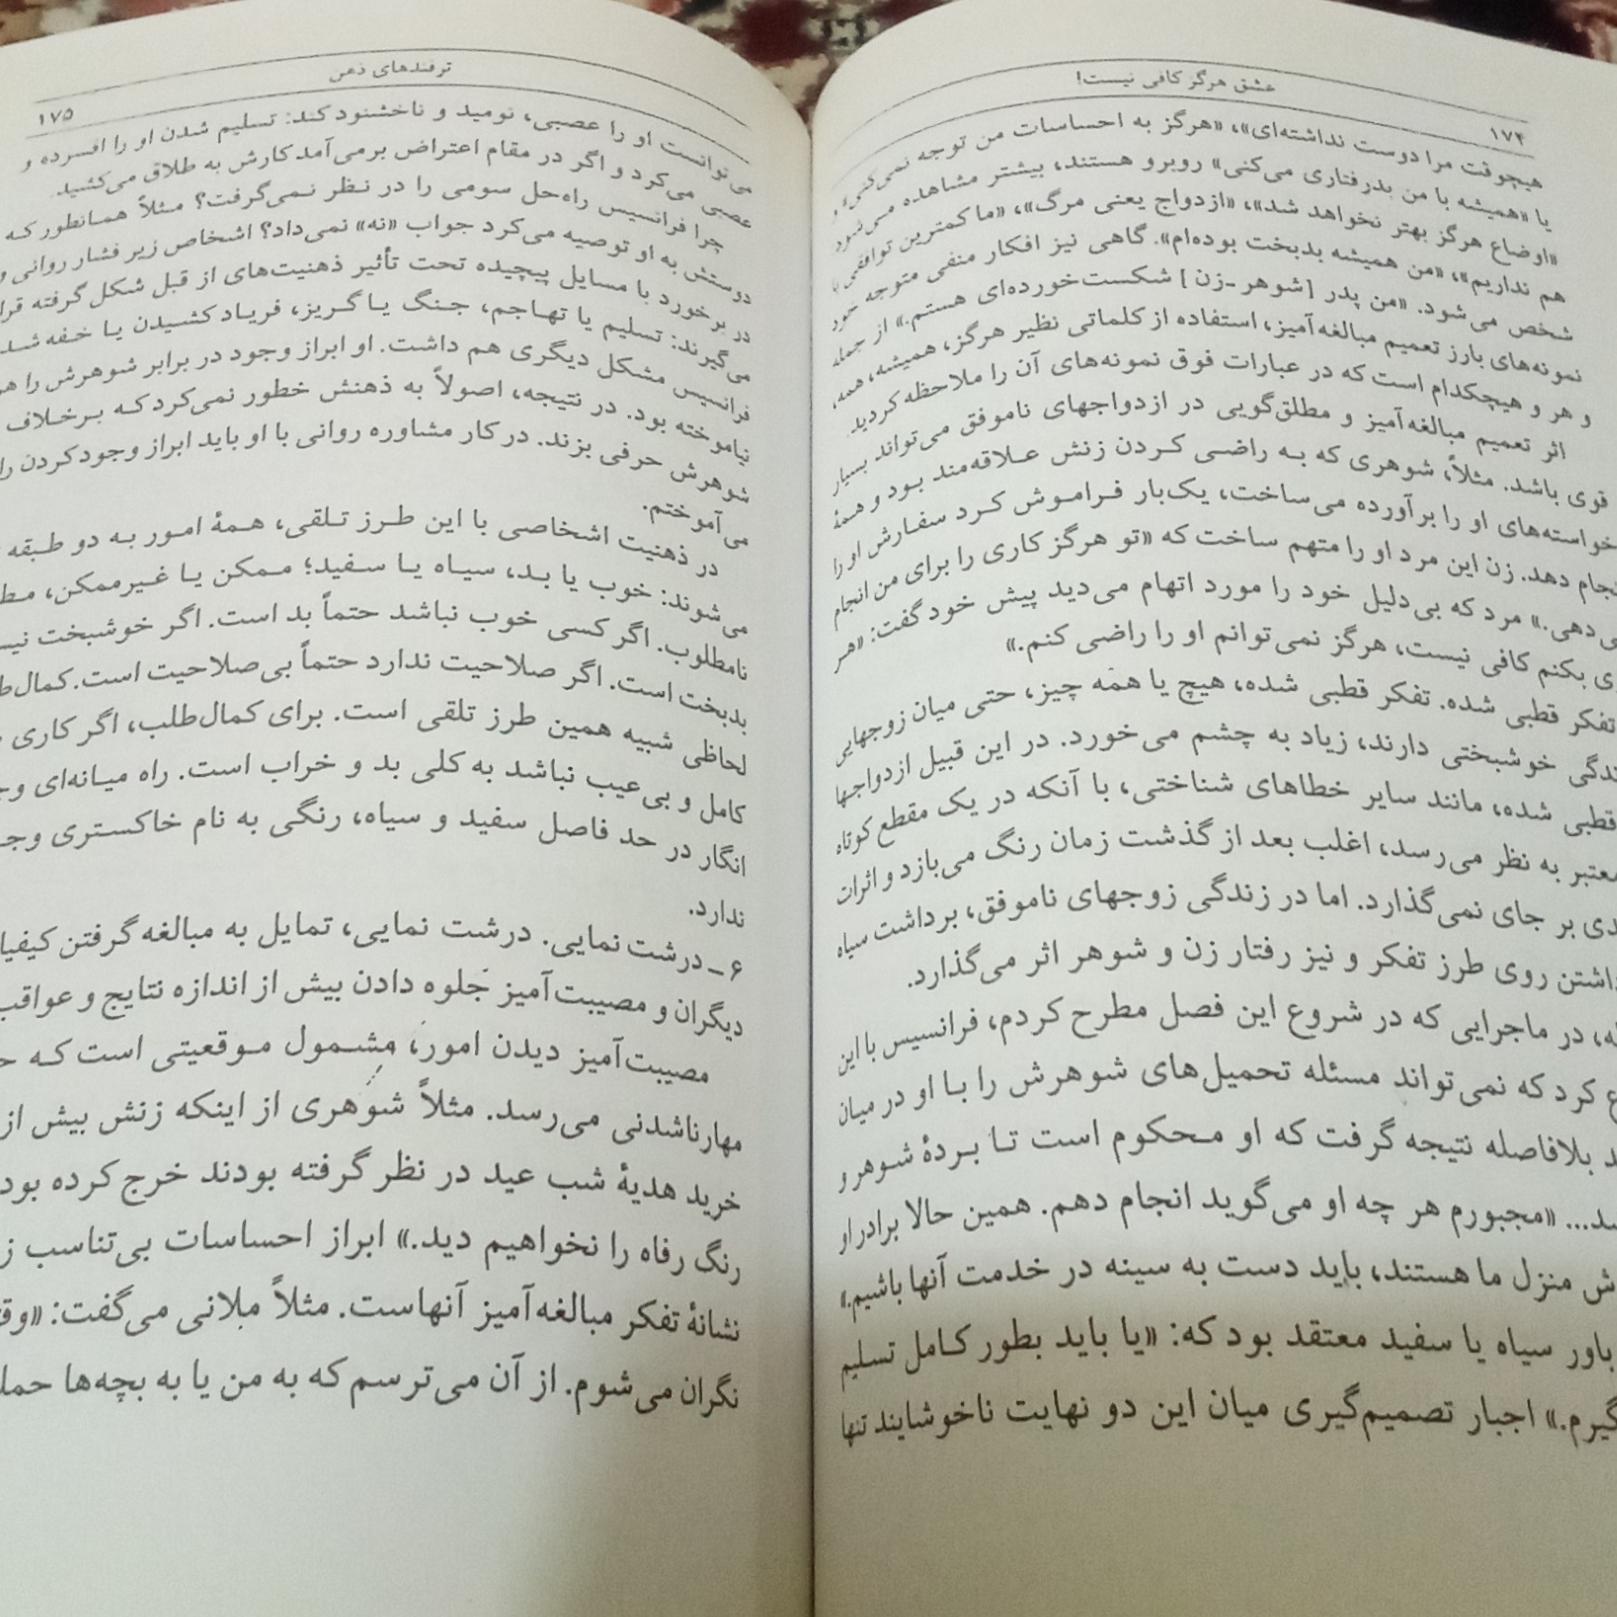 عشق هرگز کافی نیست!
۱۷۴
هیچوقت مرا دوست نداشته‌ای»، «هرگز به احساسات من توجه نمی‌کنی» و
یا «همیشه با من بدرفتاری می‌کنی» روبرو هستند، بیشتر مشاهده می‌شود
«اوضاع هرگز بهتر نخواهد شد»، «ازدواج یعنی مرگ»، «ما کمترین توافقی با
هم نداریم»، «من همیشه بدبخت بوده‌ام». گاهی نیز افکار منفی متوجه خود
شخص می‌شود. «من پدر [شوهر ـ زن] شکست‌خورده‌ای هستم.» از جمله
نمونه‌های بارز تعمیم مبالغه‌آمیز، استفاده از کلماتی نظیر هرگز، همیشه، همه،
و هر و هیچکدام است که در عبارات فوق نمونه‌های آن را ملاحظه کردید.
اثر تعمیم مبالغه‌آمیز و مطلق‌گویی در ازدواجهای ناموفق می‌تواند بسیار
قوی باشد. مثلاً، شوهری که به راضی کردن زنش علاقه‌مند بود و همهٔ
خواسته‌های او را برآورده می‌ساخت، یک‌بار فراموش کرد سفارش او را
نجام دهد. زن این مرد او را متهم ساخت که «تو هرگز کاری را برای من انجام
ی‌دهی.» مرد که بی‌دلیل خود را مورد اتهام می‌دید پیش خود گفت: «هر
ی بکنم کافی نیست، هرگز نمی‌توانم او را راضی کنم.»
تفکر قطبی شده. تفکر قطبی شده، هیچ یا همه چیز، حتی میان زوجهایی
ندگی خوشبختی دارند، زیاد به چشم می‌خورد. در این قبیل ازدواجها
قطبی شده، مانند سایر خطاهای شناختی، با آنکه در یک مقطع کوتاه
معتبر به نظر می‌رسد، اغلب بعد از گذشت زمان رنگ می‌بازد و اثرات
دی بر جای نمی‌گذارد. اما در زندگی زوجهای ناموفق، برداشت سیاه
اشتن روی طرز تفکر و نیز رفتار زن و شوهر اثر می‌گذارد.
ه، در ماجرایی که در شروع این فصل مطرح کردم، فرانسیس با این
ع کرد که نمی‌تواند مسئله تحمیل‌های شوهرش را با او در میان
د بلافاصله نتیجه گرفت که او محکوم است تا بردهٔ شوهر و
شد... «مجبورم هر چه او می‌گوید انجام دهم. همین حالا برادر او
ش منزل ما هستند، باید دست به سینه در خدمت آنها باشیم.»
باور سیاه یا سفید معتقد بود که: «یا باید بطور کامل تسلیم
گیرم.» اجبار تصمیم‌گیری میان این دو نهایت ناخوشایند تنها
ترفندهای ذهن
۱۷۵
می‌توانست او را عصبی، نومید و ناخشنود کند: تسلیم شدن او را افسرده و
عصبی می‌کرد و اگر در مقام اعتراض برمی‌آمد کارش به طلاق می‌کشید.
چرا فرانسیس راه‌حل سومی را در نظر نمی‌گرفت؟ مثلاً همانطور که
دوستش به او توصیه می‌کرد جواب «نه» نمی‌داد؟ اشخاص زیر فشار روانی و
در برخورد با مسایل پیچیده تحت تأثیر ذهنیت‌های از قبل شکل گرفته قرا
می‌گیرند: تسلیم یا تهاجم، جنگ یا گریز، فریاد کشیدن یا خفه شد
فرانسیس مشکل دیگری هم داشت. او ابراز وجود در برابر شوهرش را هر
نیاموخته بود. در نتیجه، اصولاً به ذهنش خطور نمی‌کرد که برخلاف
شوهرش حرفی بزند. در کار مشاوره روانی با او باید ابراز وجود کردن را
می‌آموختم.
در ذهنیت اشخاصی با این طرز تلقی، همهٔ امور به دو طبقه
می‌شوند: خوب یا بد، سیاه یا سفید؛ ممکن یا غیرممکن، مط
نامطلوب. اگر کسی خوب نباشد حتماً بد است. اگر خوشبخت نیس
بدبخت است. اگر صلاحیت ندارد حتماً بی‌صلاحیت است. کمال‌ط
لحاظی شبیه همین طرز تلقی است. برای کمال‌طلب، اگر کاری
کامل و بی‌عیب نباشد به کلی بد و خراب است. راه میانه‌ای وج
انگار در حد فاصل سفید و سیاه، رنگی به نام خاکستری وجـ
ندارد.
۶ ـ درشت نمایی. درشت نمایی، تمایل به مبالغه گرفتن کیفیا
دیگران و مصیبت‌آمیز جلوه دادن بیش از اندازه نتایج و عواقب
مصیبت‌آمیز دیدن امور، مشمول موقعیتی است که حـ
مهارناشدنی می‌رسد. مثلاً شوهری از اینکه زنش بیش از
خرید هدیهٔ شب عید در نظر گرفته بودند خرج کرده بود
رنگ رفاه را نخواهیم دید.» ابراز احساسات بی‌تناسب ز
نشانهٔ تفکر مبالغه‌آمیز آنهاست. مثلاً ملانی می‌گفت: «وق
نگران می‌شوم. از آن می‌ترسم که به من یا به بچه‌ها حمل